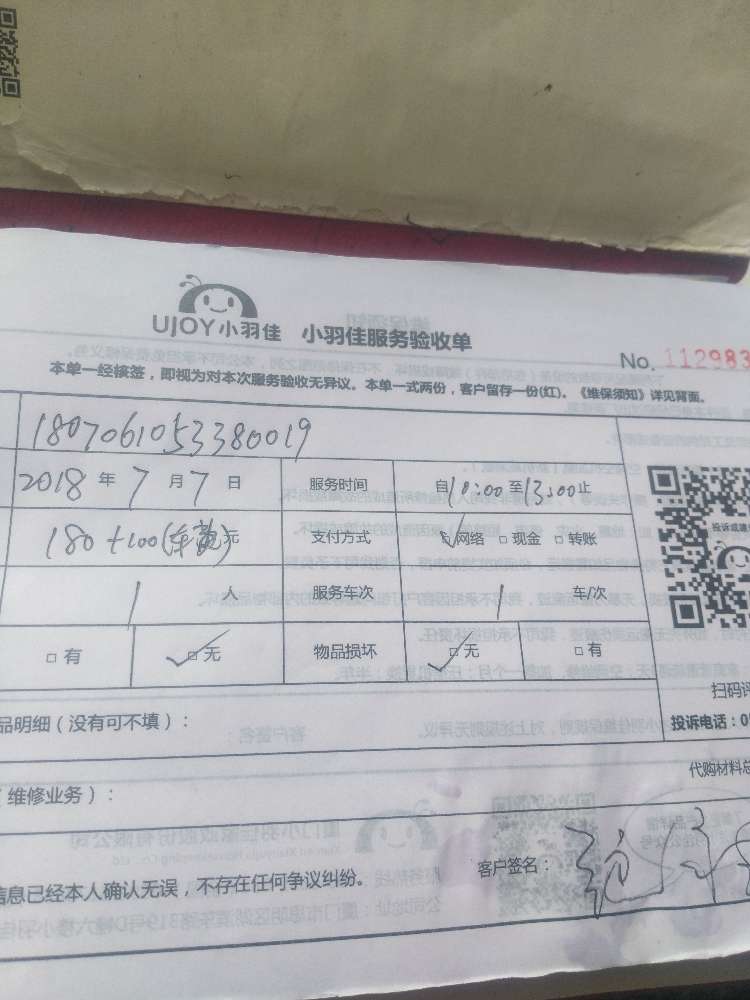 UJOY小羽佳 小羽佳服务验收单
No. 112983
本单一经接签，即视为对本次服务验收无异议。本单一式两份，客户留存一份(红)。《维保须知》详见背面。
1807061053380019
2018 年 7 月 7 日 服务时间 自 18:00 至 13:00 止
180+100(车费)元 支付方式 ☑网络 □现金 □转账
投诉或建
1 人 服务车次 1 车/次
□有 ☑无 物品损坏 ☑无 □有
扫码评
品明细（没有可不填）：
投诉电话：0
代购材料总
（维修业务）：
客户签名：
信息已经本人确认无误，不存在任何争议纠纷。